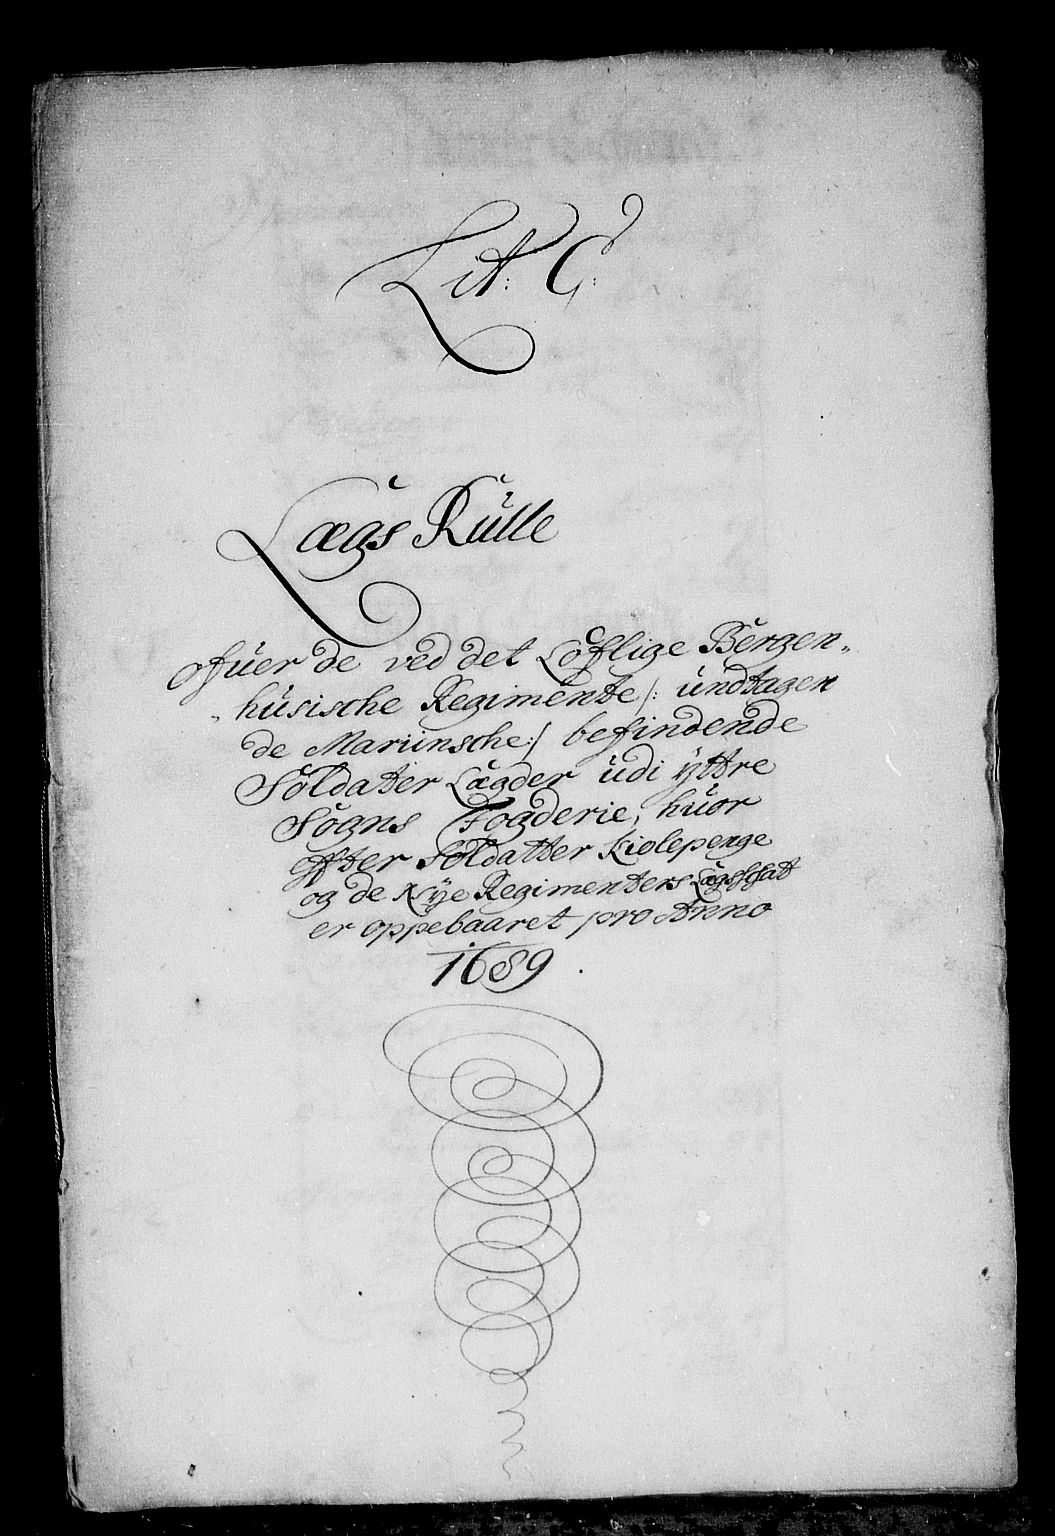 Lit: C:
Lægs Rülle
ofüer de ved det Löflige Bergen„
„hüsische Regimente /: ündtagen
de Mariinsche :/ befindende
Soldatter Lægder üdi ÿttre
Sogns Fogderie, hüor
effter Soldatter Kiolepenge
og de Nÿe Regimenters Lægsschat
er oppebaaret pro Anno
1689